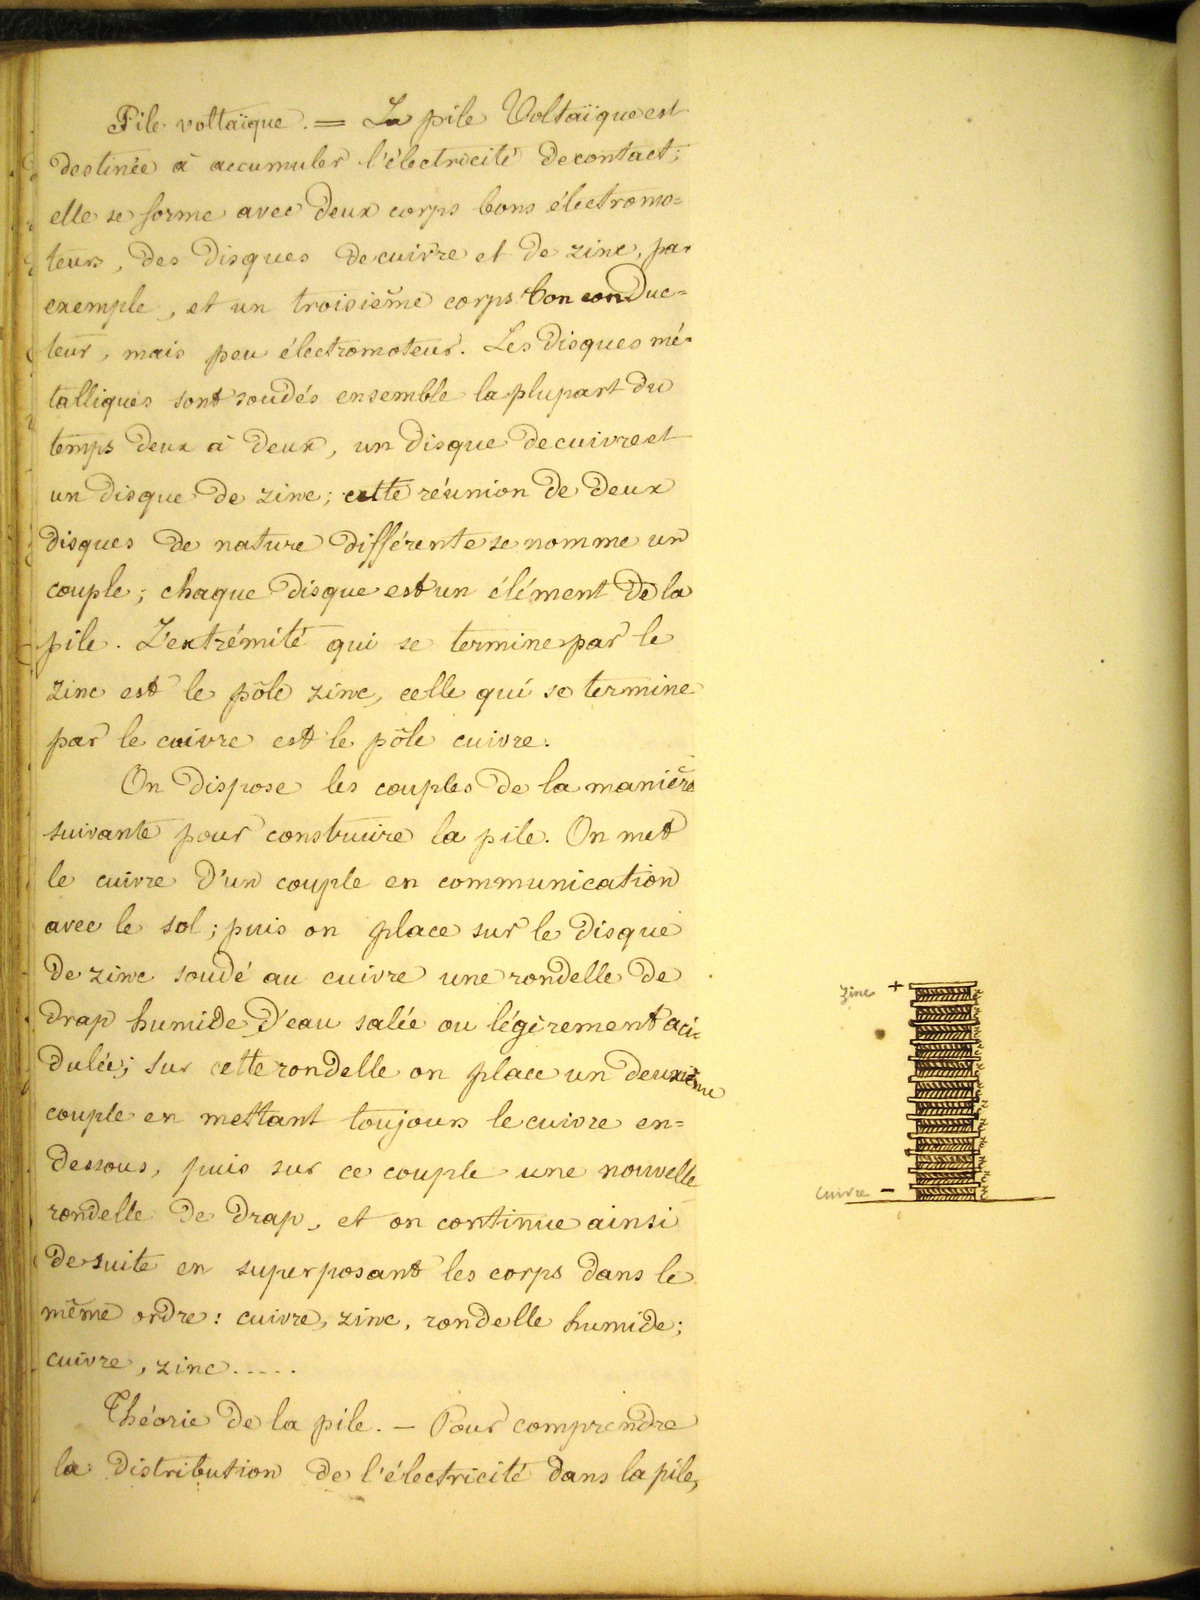 Pile voltaïque. = La pile Voltaïque est
destinée à accumuler l'électricité de contact;
elle se forme avec deux corps bons électromo=
teurs, des disques de cuivre et de zinc, par
exemple, et un troisième corps bon conduc=
teur, mais peu électromoteur. Les disques mé=
talliques sont soudés ensemble la plupart du
temps deux à deux, un disque de cuivre et
un disque de zinc; cette réunion de deux
disques de nature différente se nomme un
couple; chaque disque est un élément de la
pile. L'extrémité qui se termine par le
zinc est le pôle zinc, celle qui se termine
par le cuivre est le pôle cuivre.
On dispose les couples de la manière
suivante pour construire la pile. On met
le cuivre d'un couple en communication
avec le sol; puis on place sur le disque
de zinc soudé au cuivre une rondelle de
drap humide d'eau salée ou légèrement aci-
dulée; sur cette rondelle on place un deuxième
couple en mettant toujours le cuivre en=
dessous, puis sur ce couple une nouvelle
rondelle de drap, et on continue ainsi
de suite en superposant les corps dans le
même ordre: cuivre, zinc, rondelle humide;
cuivre, zinc.....
Théorie de la pile. — Pour comprendre
la distribution de l'électricité dans la pile,
zinc +
cuivre -